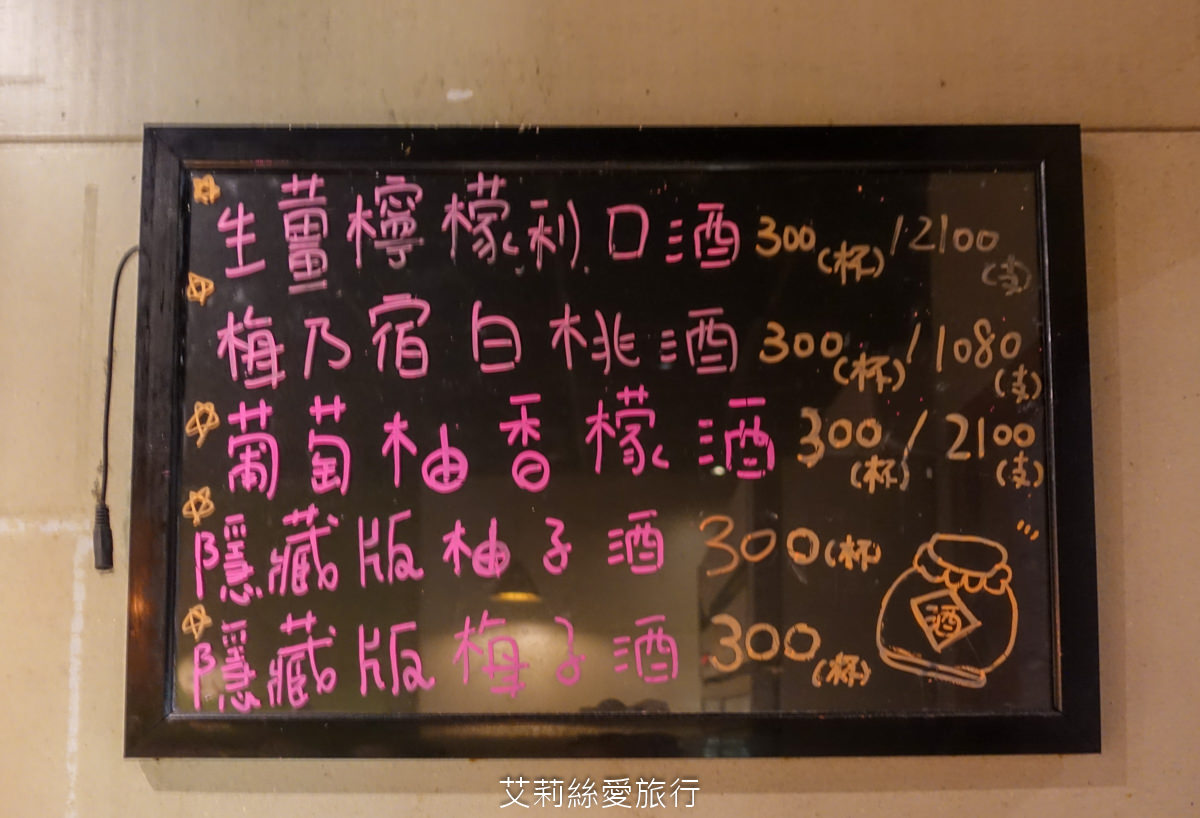 生薑檸檬利口酒 300(杯)/2100(支)
梅乃宿白桃酒 300(杯)/1080(支)
葡萄柚香檬酒 300(杯)/2100(支)
隱藏版柚子酒 300(杯)
隱藏版梅子酒 300(杯)
酒
艾莉絲愛旅行